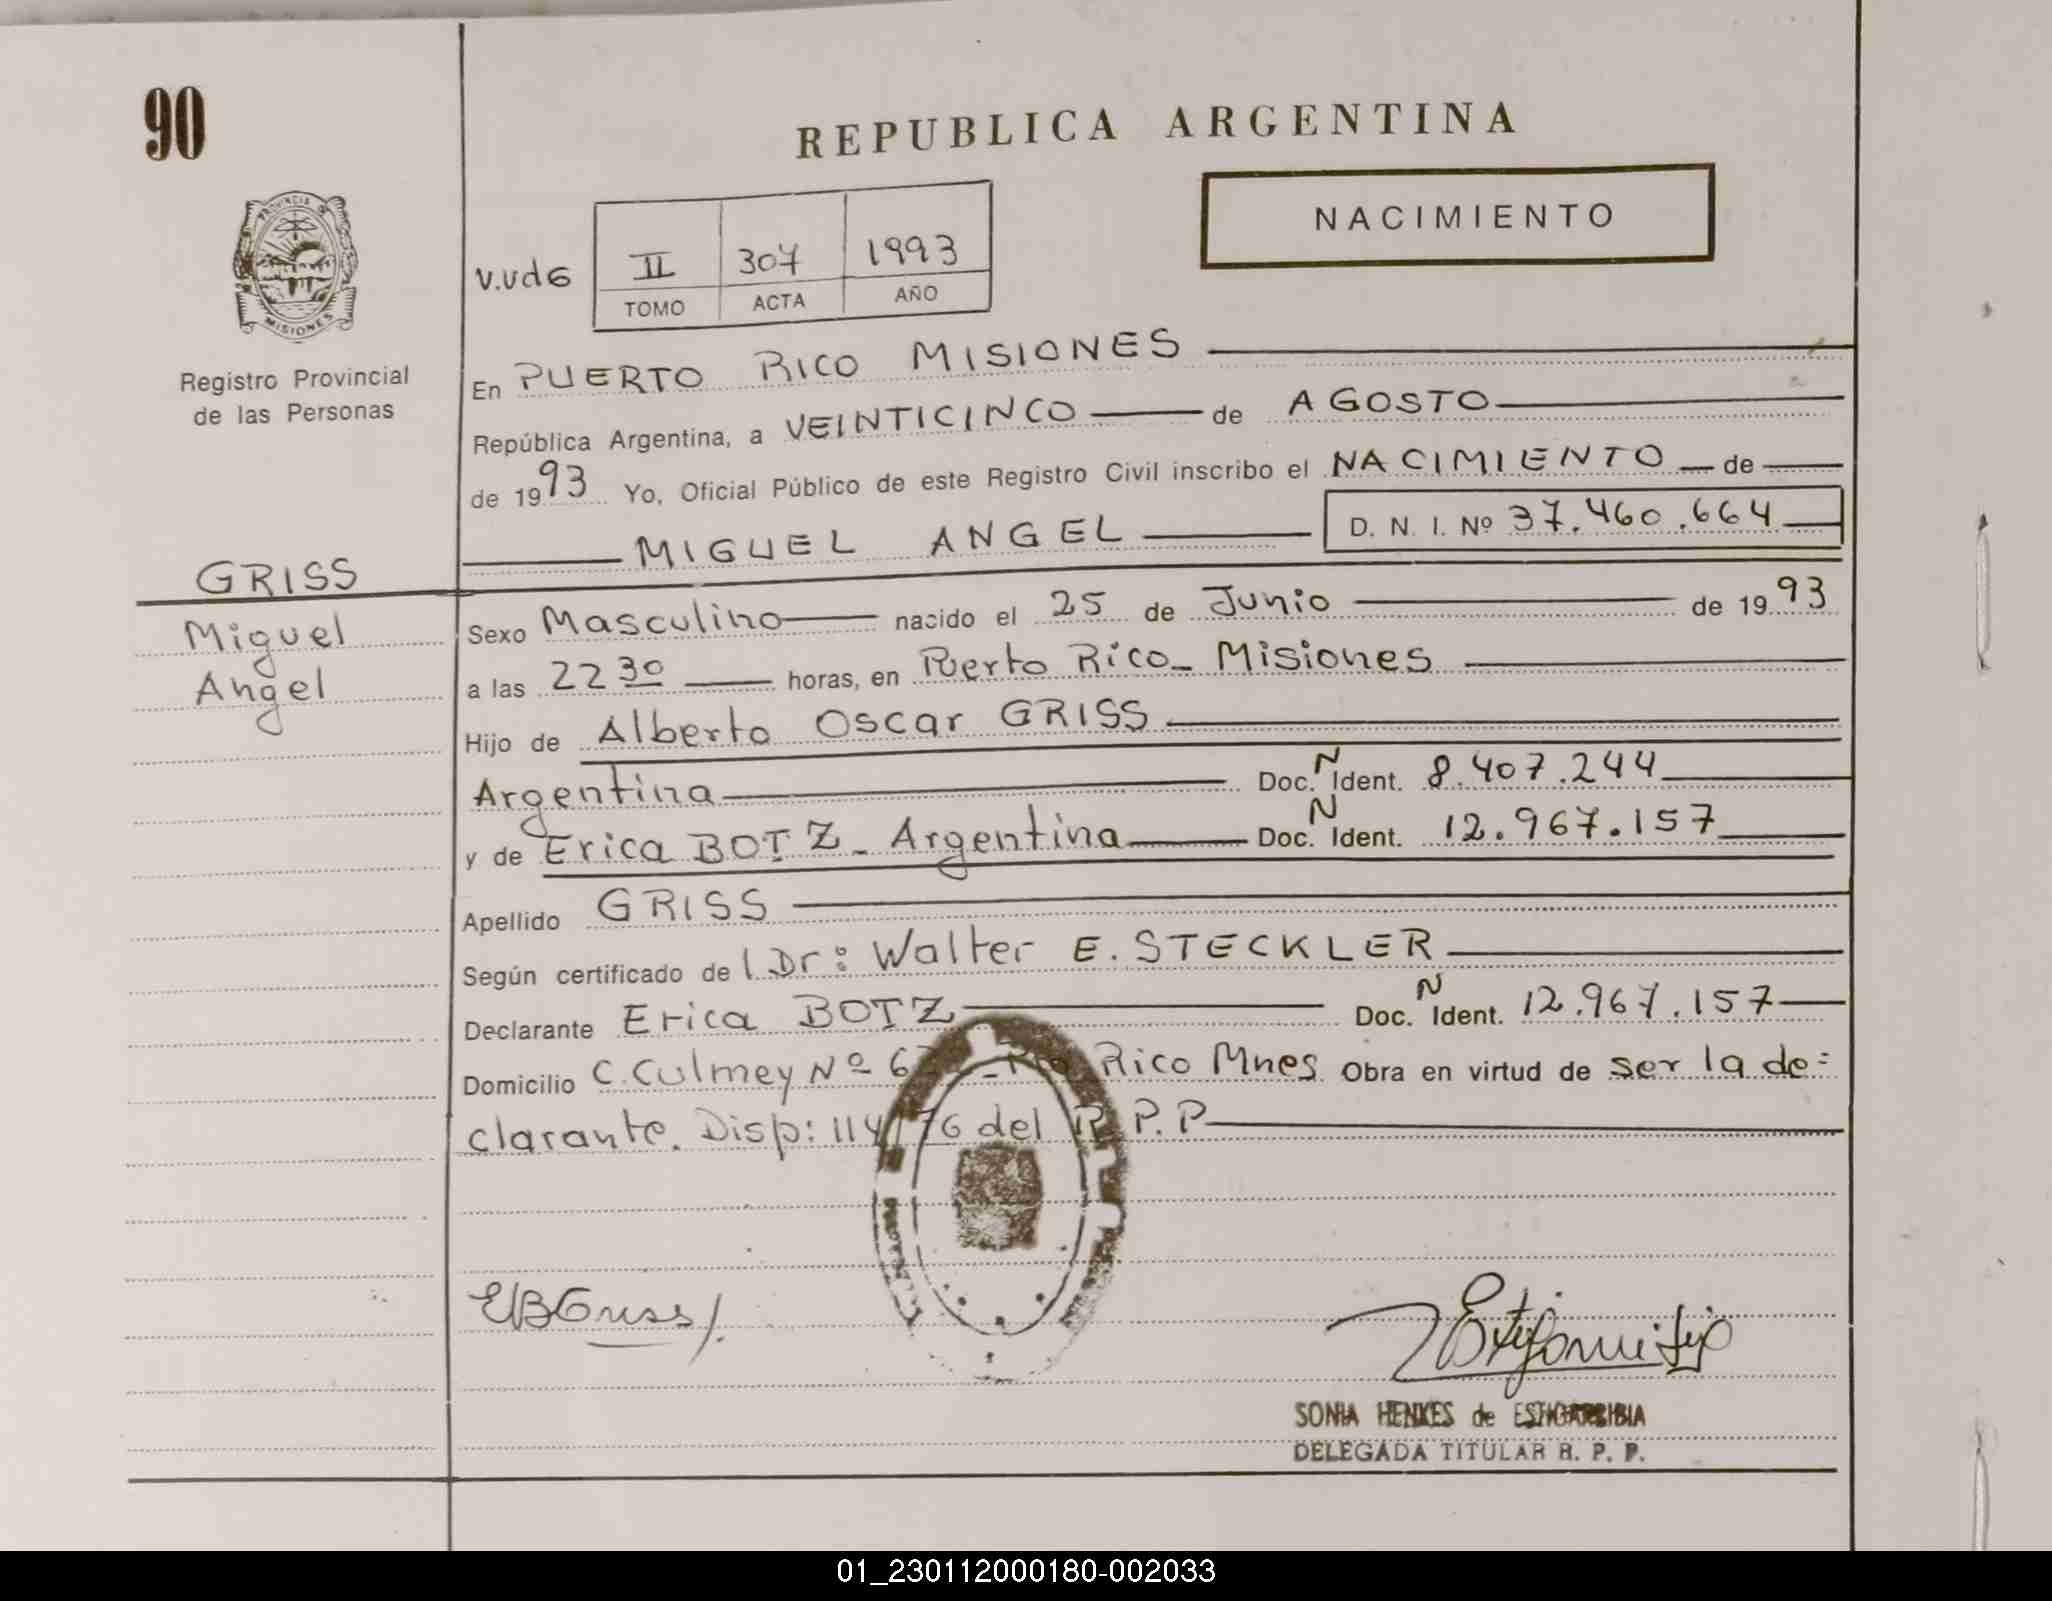 90
REPUBLICA ARGENTINA
NACIMIENTO
PROVINCIA DE
MISIONES
Registro Provincial
de las Personas
II 307 1993
TOMO ACTA AÑO
En PUERTO RICO MISIONES
República Argentina, a VEINTICINCO de AGOSTO
de 1993 Yo, Oficial Público de este Registro Civil inscribo el NACIMIENTO de
MIGUEL ANGEL D. N. I. Nº 37.460.664
GRISS
Miguel
Angel
Sexo Masculino nacido el 25 de Junio de 1993
a las 22 30 horas, en Puerto Rico_ Misiones
Hijo de Alberto Oscar GRISS
Argentina Doc. N Ident. 8.407.244
y de Erica BOTZ_ Argentina Doc. N Ident. 12.967.157
Apellido GRISS
Según certificado de l Dr: Walter E. STECKLER
Declarante Erica BOTZ Doc. N Ident. 12.967.157
Domicilio C. Culmey Nº Rico Mnes Obra en virtud de ser la de=
clarante. Disp: 114/76 del R.P.P
EBGriss
SONIA HENKES de ESTIGARRIBIA
DELEGADA TITULAR R. P. P.
01_230112000180-002033